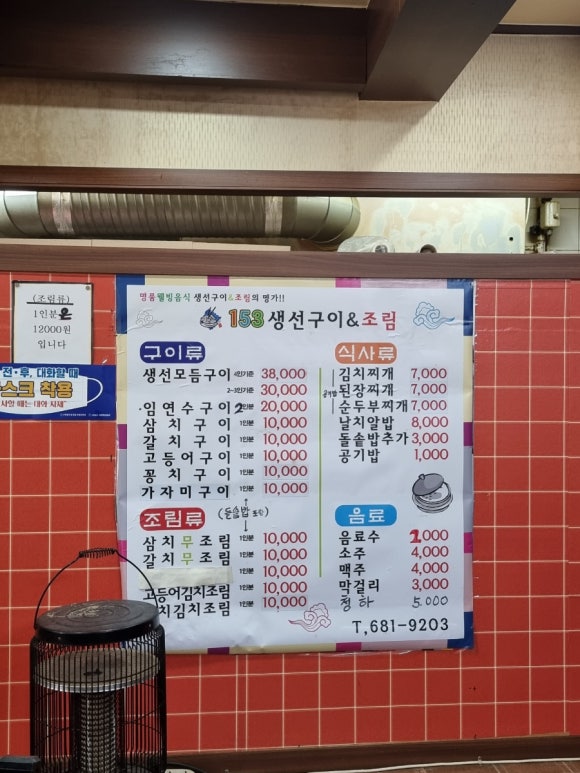 (조림류)
1인분은
12000원
입니다
전·후, 대화할 때
스크 착용
명품웰빙음식 생선구이&조림의 명가!!
153 생선구이&조림
구이류
생선모듬구이 4인기준 38,000
2~3인기준 30,000
임연수구이 2인분 20,000
삼치구이 1인분 10,000
갈치구이 1인분 10,000
고등어구이 1인분 10,000
꽁치구이 1인분 10,000
가자미구이 1인분 10,000
(돌솥밥 포함)
조림류
삼치무조림 1인분 10,000
갈치무조림 1인분 10,000
1인분 10,000
고등어김치조림 1인분 10,000
치김치조림 1인분 10,000
식사류
공기밥
김치찌개 7,000
된장찌개 7,000
순두부찌개 7,000
날치알밥 8,000
돌솥밥추가 3,000
공기밥 1,000
음료
음료수 2,000
소주 4,000
맥주 4,000
막걸리 3,000
청하 5.000
T,681-9203